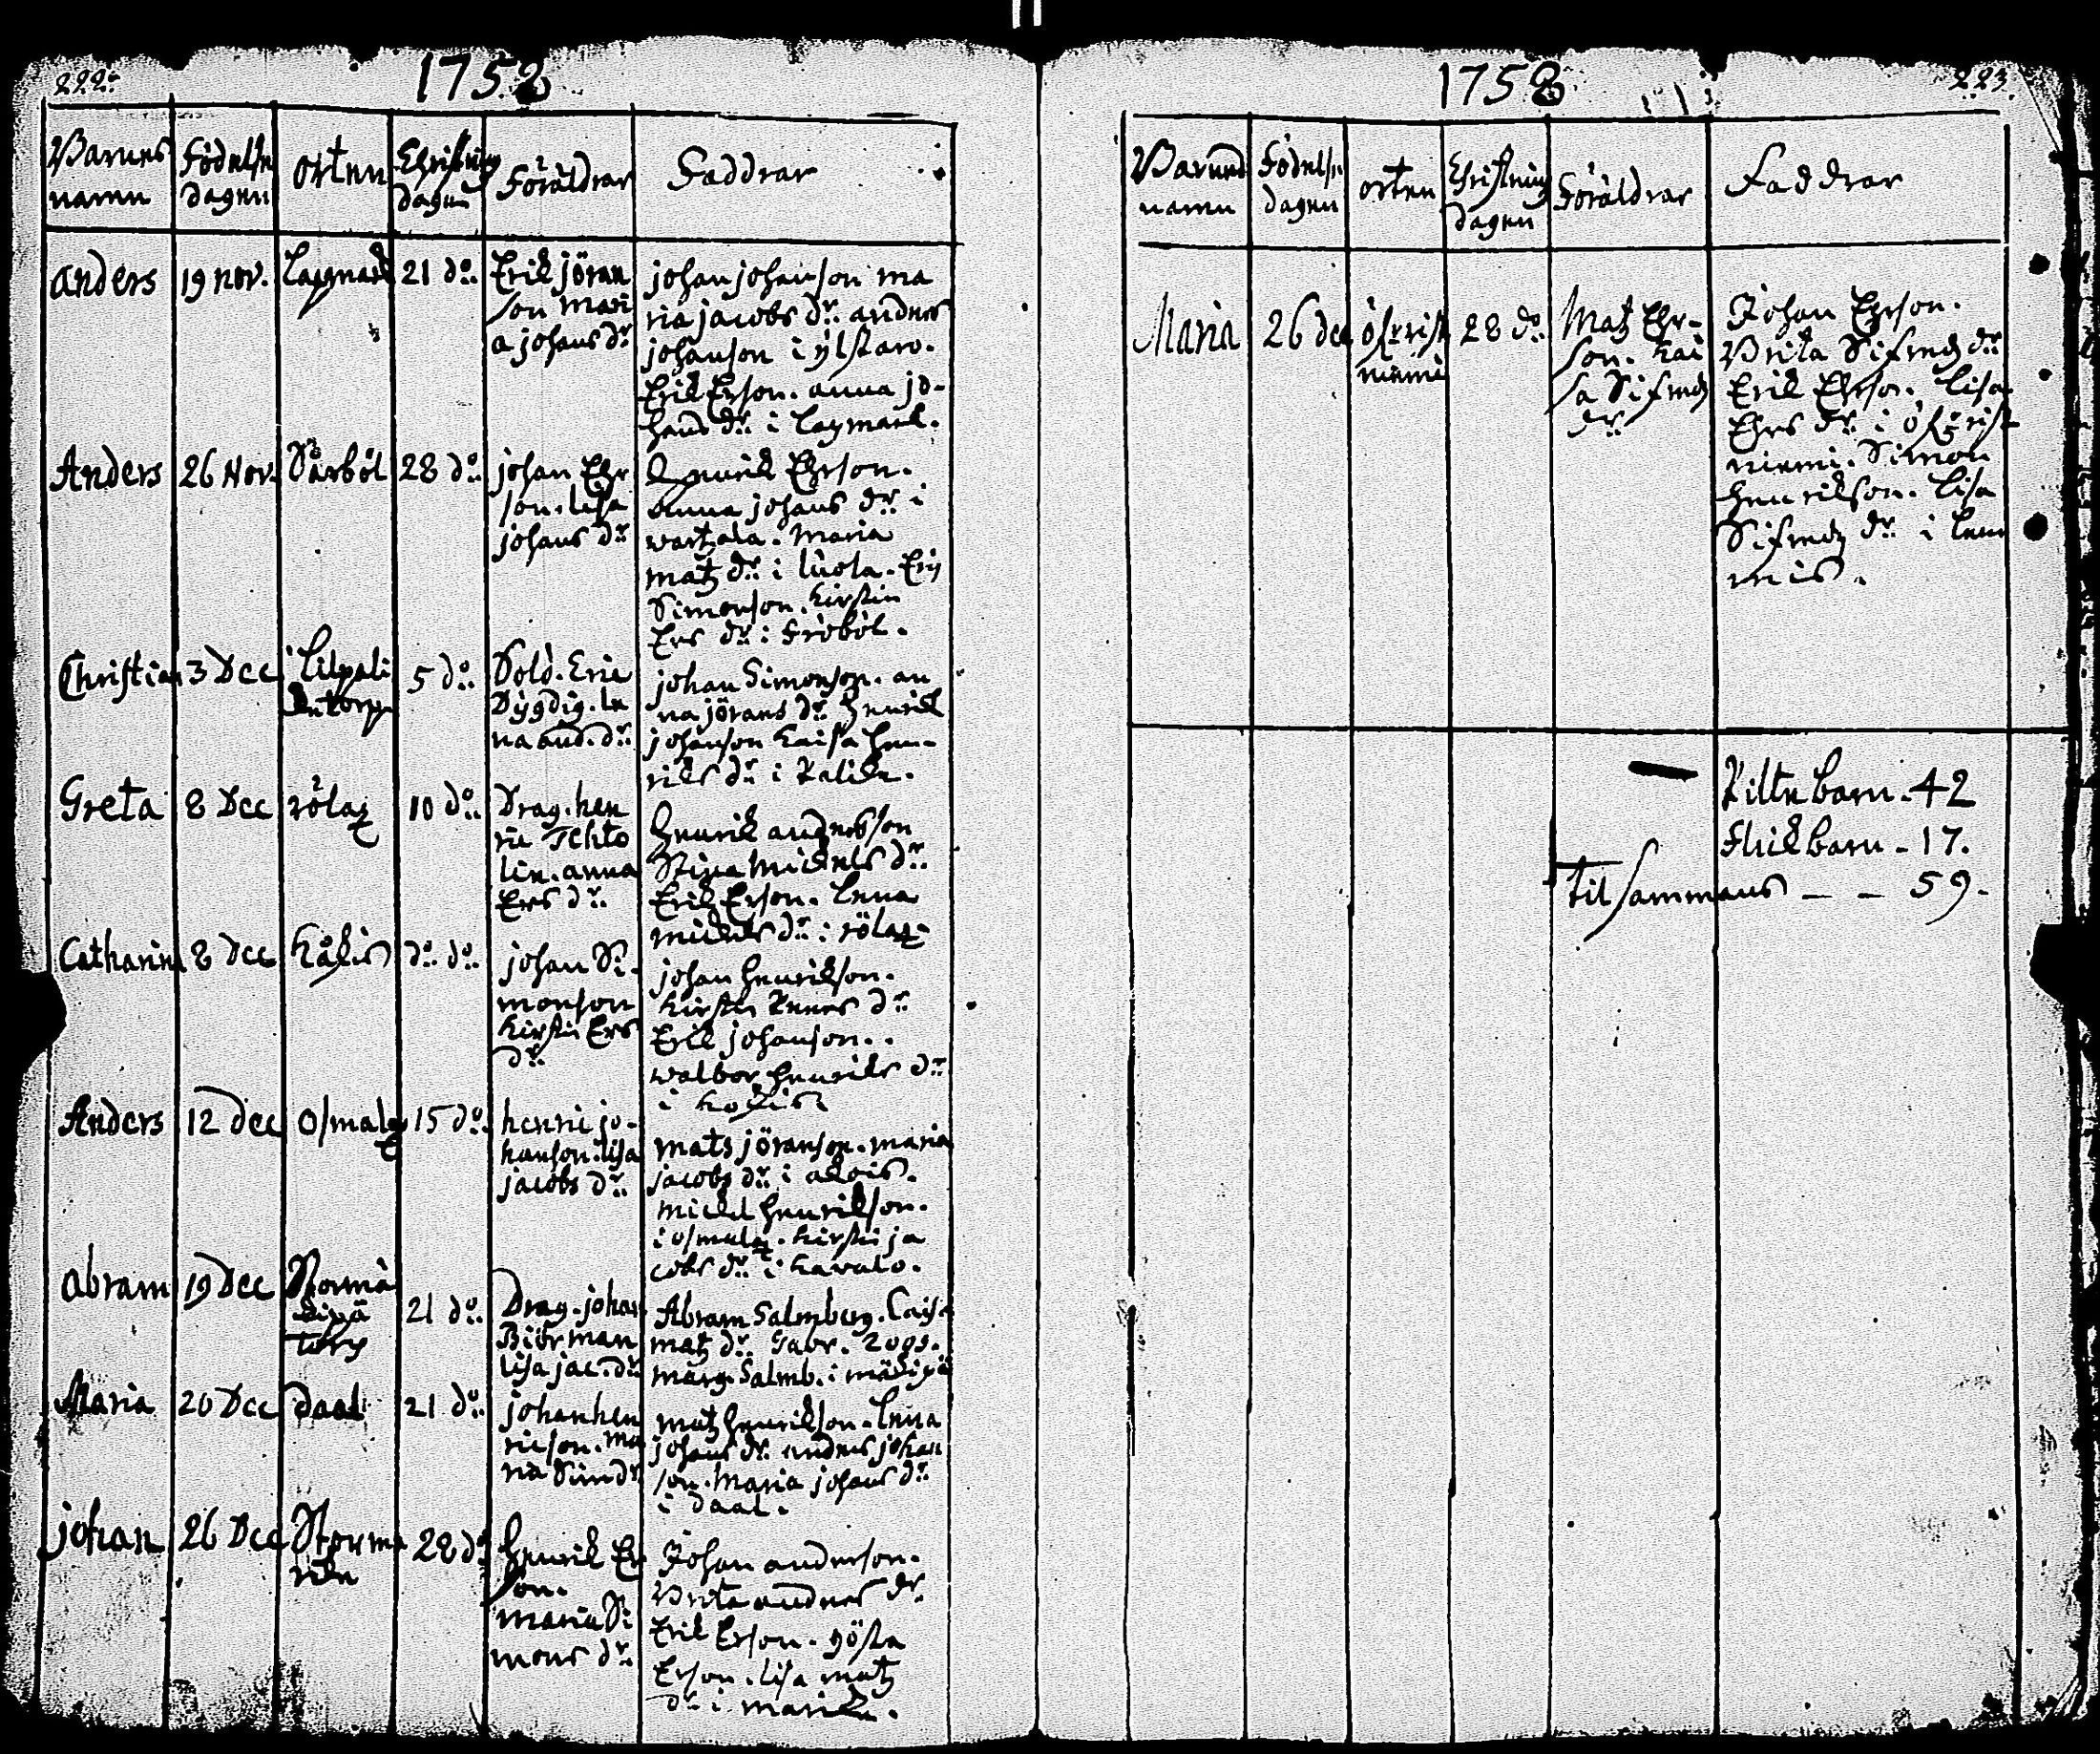 222.
1758
Barnets namn
Födelse dagen
orten
Christnings dagen
Föräldrar
Faddrar
Anders 19 nov. Lapmark 21 do.
Erik jöran
son mari
a johans dr
johan johanson ma
ria jacobs dr. anders
johanson i ylstaro.
Erik Erson. anna jo-
hans dr. i Lapmark.
Anders 26 Nov. Sårböl 28 do.
johan Ehr
son. lisa
johans dr
Henrik Ehrson.
anna johans dr. i
wartzala. Maria
matz dr. i luola.
Simonson. Kirstin
Ers dr. i Fröböl.
Christian 3 Dec 5 do.
Sold. Eric
Dygdig. le
na and. dr.
johan Simonson. an
na jörans dr. Henrik
johanson Kaisa Hen-
riks dr. i
Greta 8 Dec rölax 10 do.
Drag. hen
ric Tehto
lin. anna
Ers dr.
Henrik andersson
Stina Mickels dr.
Erik Erson. Lena
mickels dr. i rölax
Catharina 8 Dec do. do.
johan Si-
monson
Kirstin Ers
dr.
johan Henrikson.
Kirstin dr
Erik johanson.
walbor Henriks dr
i
Anders 12 Dec Osmalax 15 do.
henric jo-
hanson. lisa
jacobs dr.
mats jöranson. maria
jacobs dr. i
mickel Henrikson.
i osmalax. Kirstin ja
cobs dr. i
Abram 19 Dec 21 do.
Stormä
kipä
torp
Drag. johan
Biörman
lisa jac. dr.
Abram Salmberg. Caisa
matz dr. Gabr.
marg. Salmb. i mäkipä
Maria 20 Dec Daal 21 do.
johan hen
ricson. Ma
ria Sim dr
matz Henrikson. Lena
johans dr. anders johan
son. Maria johans dr.
i Daal.
johan 26 Dec 28 do.
Henrik Er
son.
maria Si
mons dr.
Johan anderson.
Brita anders dr
Erik Erson. gösta
Erson. lisa matz
dr. i
1758
223.
Barnets namn
Födelse dagen
orten
Christnings dagen
Föräldrar
Faddrar
Maria 26 dec 28 do.
Matz Ehr-
son. Kai
sa Sifredz
dr.
Johan Ehrson.
Brita Sifredz dr
Erik Ehrson. Lisa
Ehrs dr. i öfzrist
niemi. Simon
Henrikson. Lisa
Sifredz dr. i
Pilte barn - 42
Flick barn - 17.
tilsammans - - 59.